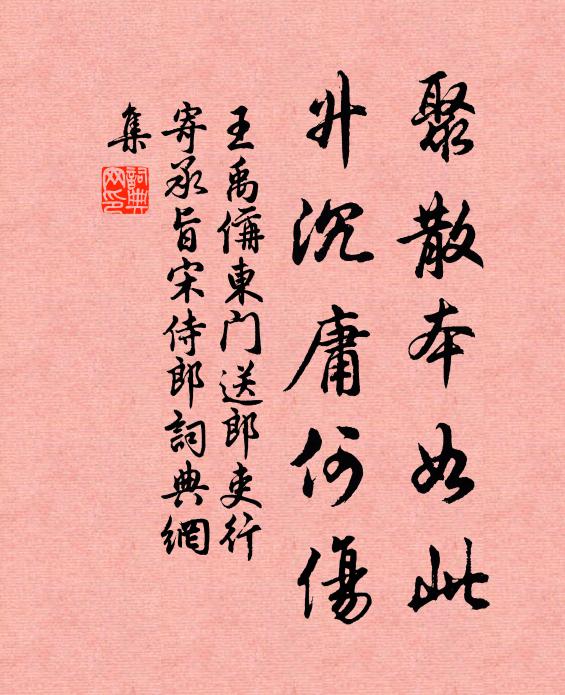 聚散本如此
升沉庸何傷
王禹偁東门送郎吏行
寄承旨宋侍郎詞典網
集
詞典
网印